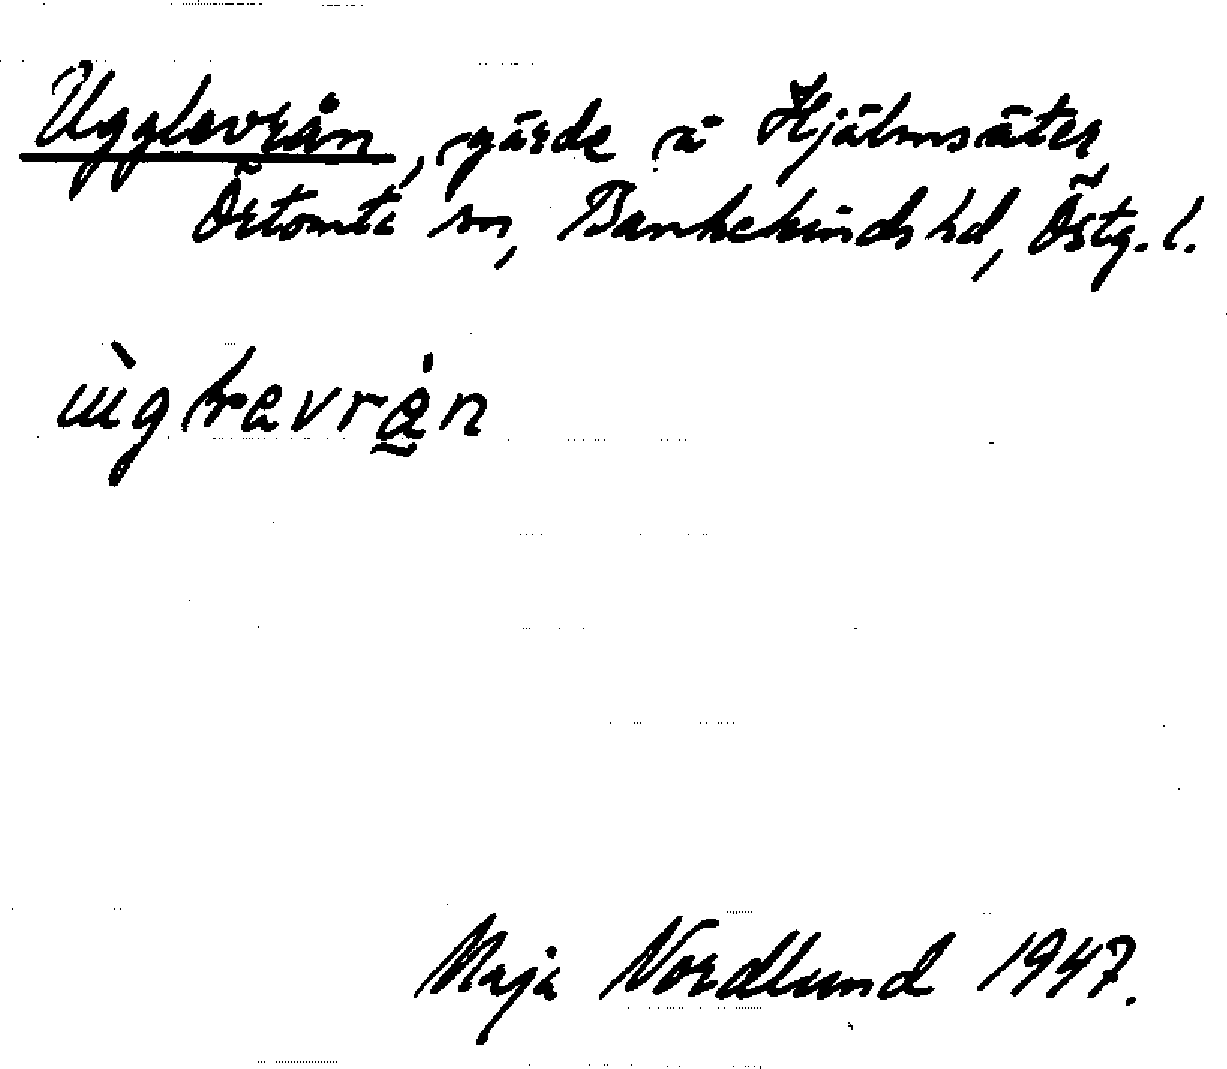 Ugglevrån, gärde å Hjälmsäter,
Örtomta sn, Bankekinds hd, Östg. l.
Maja Nordlund 1947.